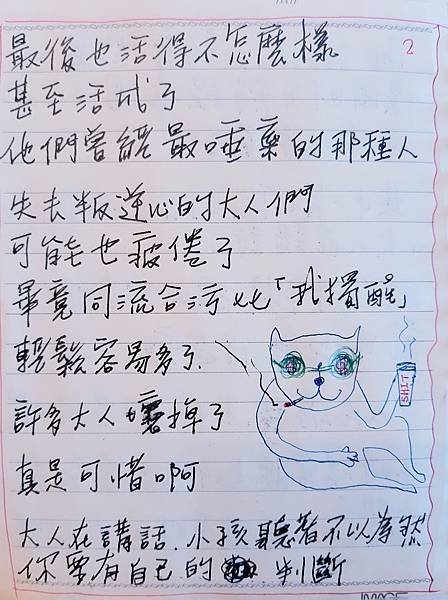 2
最後也活得不怎麼樣
甚至活成了
他們曾經最唾棄的那種人
失去叛逆心的大人們
可能也疲倦了
畢竟同流合污比「我獨醒」
輕鬆容易多了.
許多大人壞掉了
真是可惜啊
SHIT
大人在講話.小孩聽著不以為然
你要有自己的 判斷